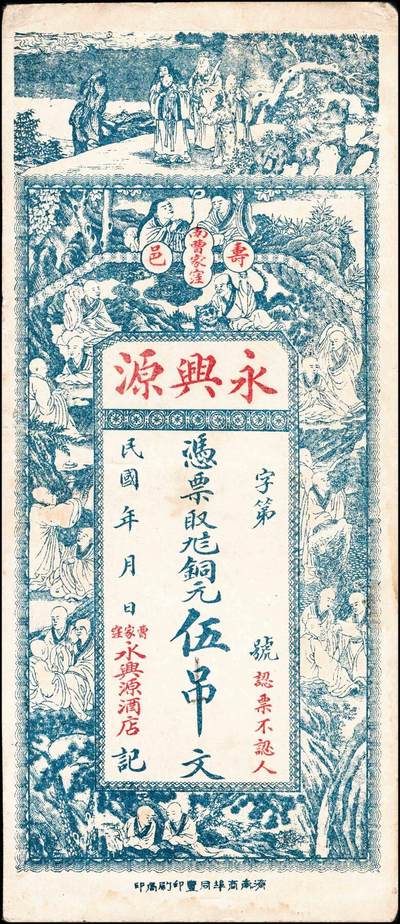 壽邑
南曹家窪
永興源
字第　號
認票不認人
憑票取九卮銅元伍吊文
民國　年　月　日
曹家窪
永興源酒店
記
濟南商埠同豐印刷局印